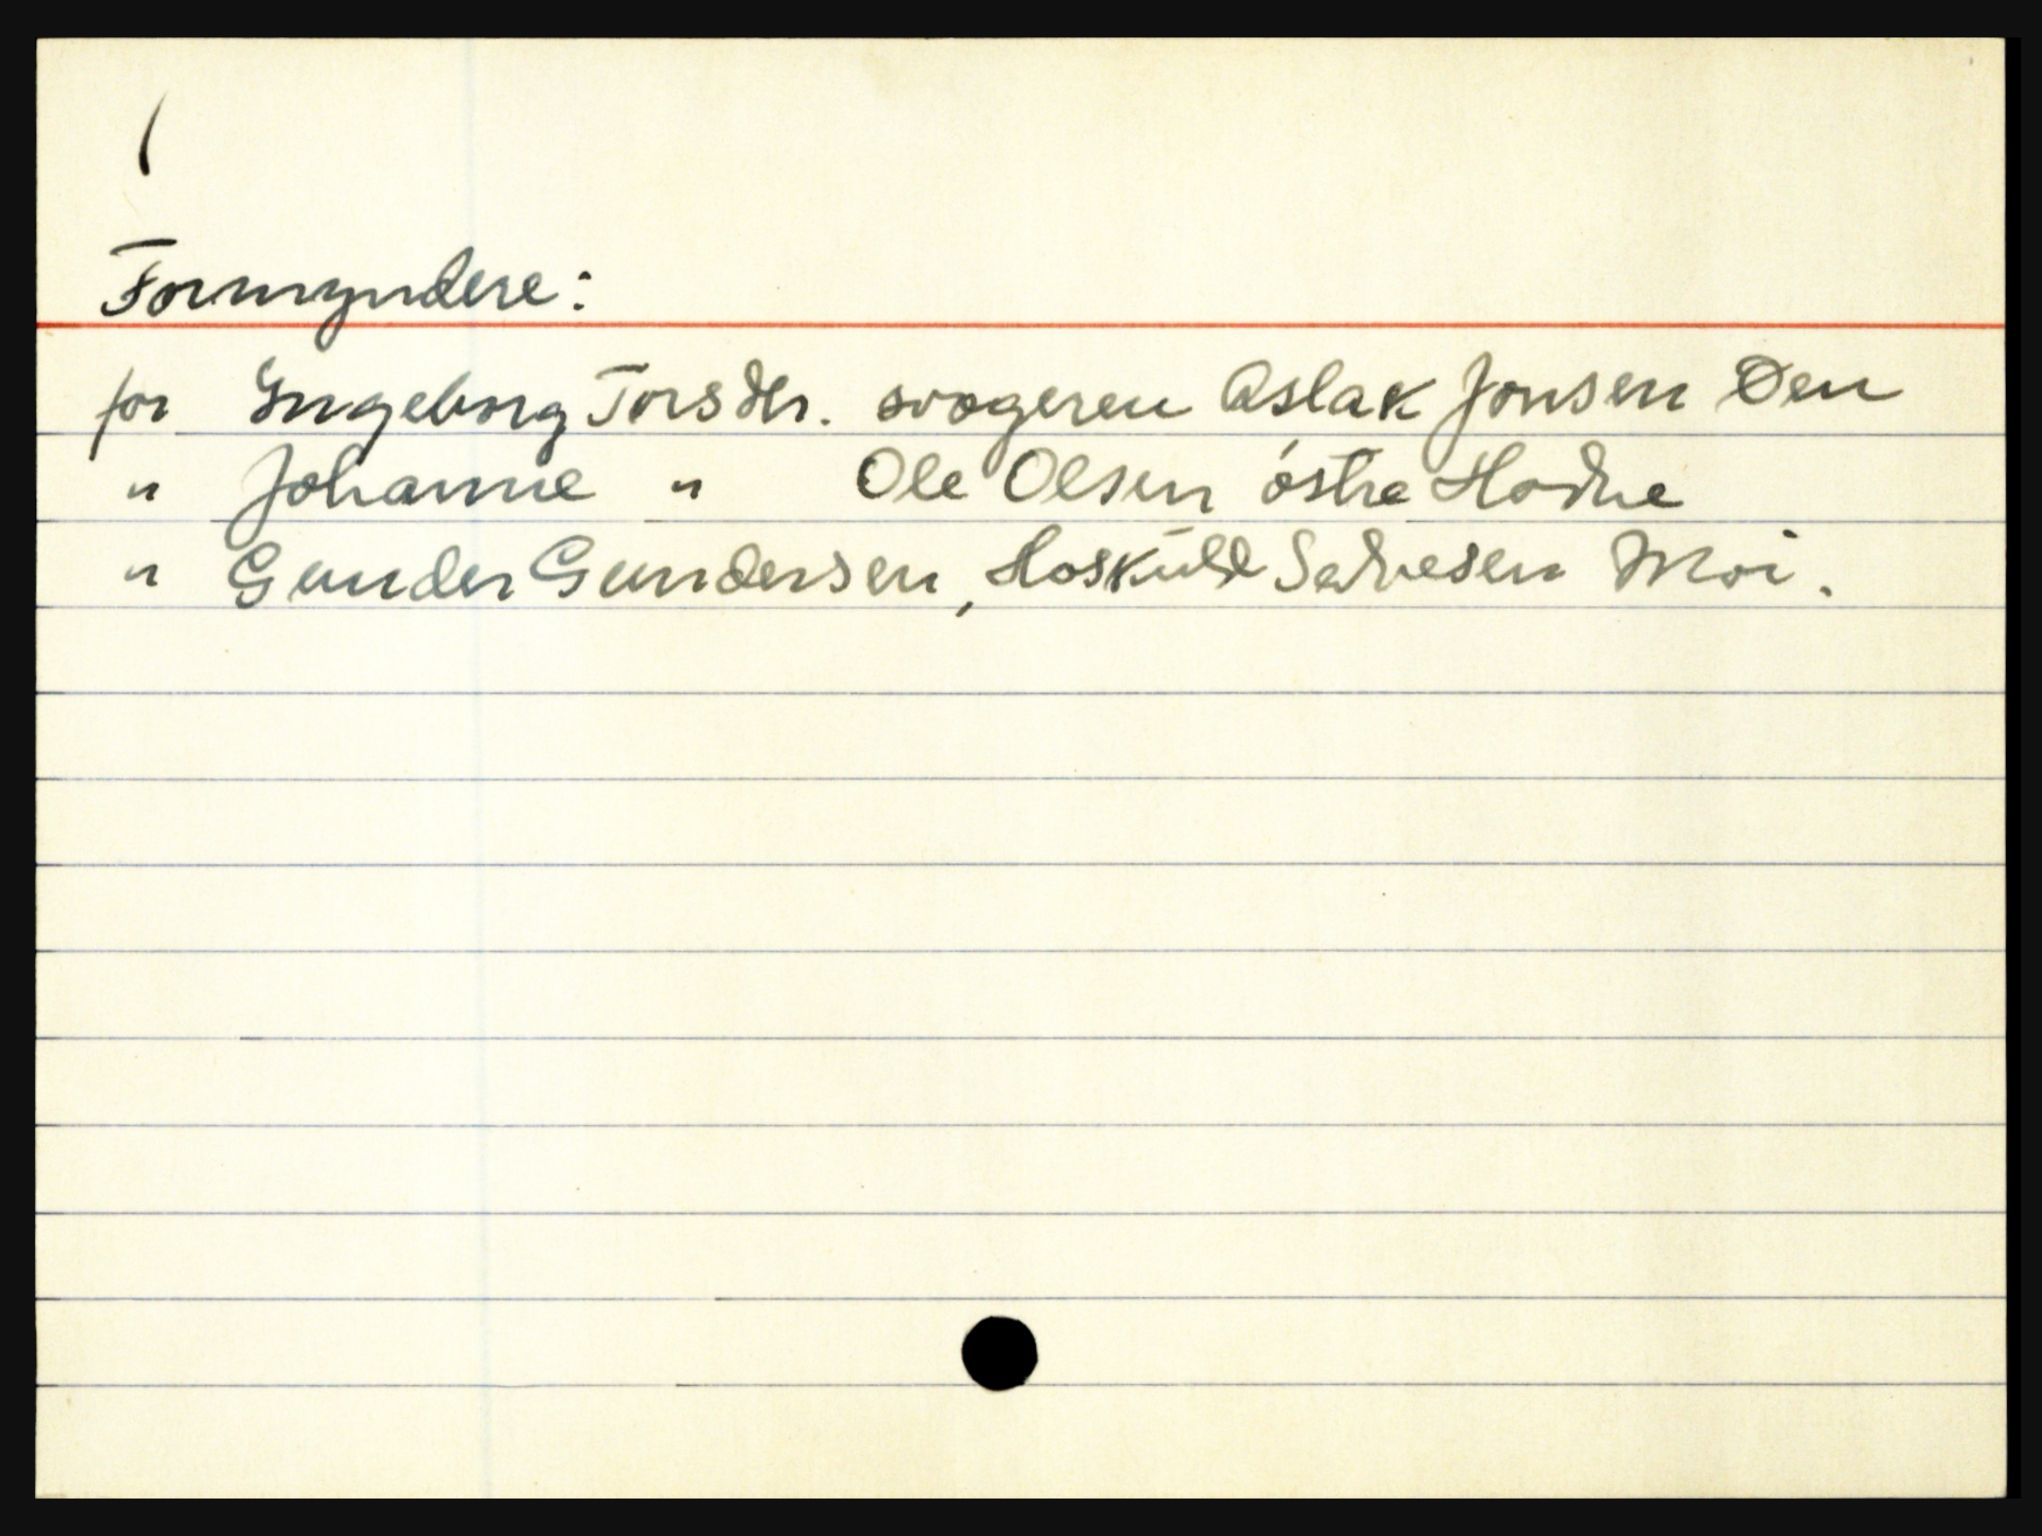 Formyndere:
for Ingeborg Torsdtr. svogeren Aslak Jonsen Øen
" Johanne " Ole Olsen östre Hodne
" Gunder Gundersen, Hoskuld Salvesen Moi.